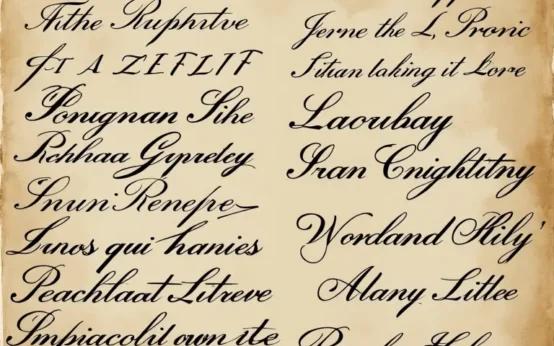 Athe Ruphitve
fr A ZEFLIF
Ponignan Sihe
Rchhaa Gyprecey
Snuni Renefre
Lunos qui hanies
Peachlaat Litreve
Impiacolit own ite
Jerne the L, Provic
Sitian laking it Lore
Laoubay
Sran Cnightitny
Wordand Hily'
Alany Littee